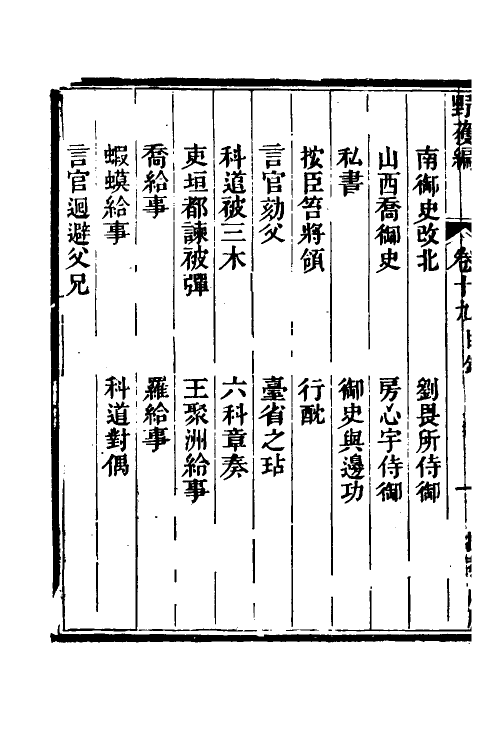 野獲編　卷十九　目錄　一
南御史改北　劉畏所侍御
山西喬御史　房心宇侍御
私書　御史與邊功
按臣笞將領　行酖
言官劾父　臺省之玷
科道被三木　六科章奏
吏垣都諫被彈　王聚洲給事
喬給事　羅給事
蝦蟆給事　科道對偶
言官迴避父兄